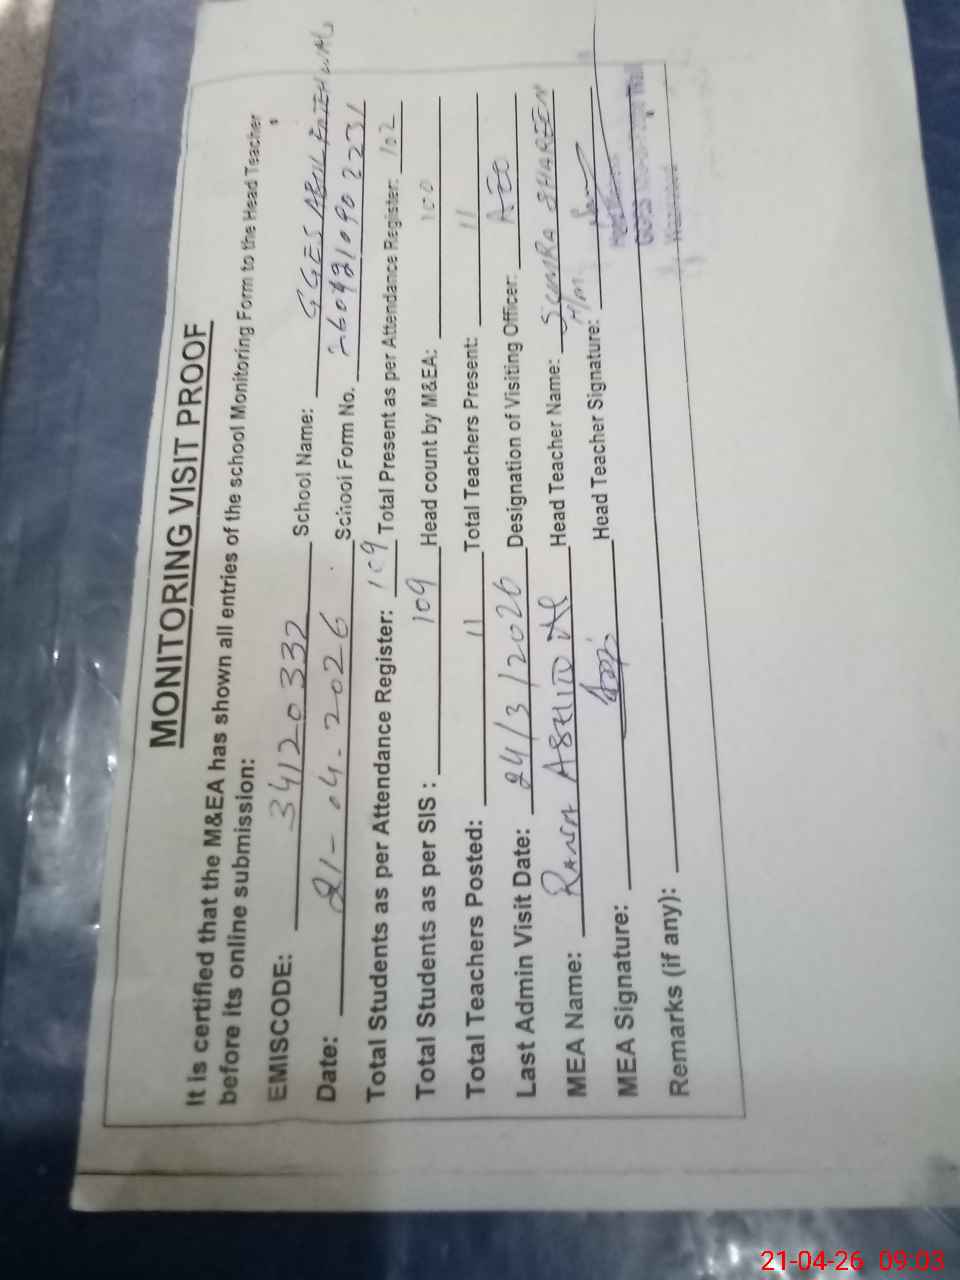 MONITORING VISIT PROOF
It is certified that the M&EA has shown all entries of the school Monitoring Form to the Head Teacher
before its online submission:
EMISCODE: 34120332 School Name: GGES
Date: 21-04-2026 School Form No. 2604210902231
Total Students as per Attendance Register: 109 Total Present as per Attendance Register: 102
Total Students as per SIS : 109 Head count by M&EA: 100
Total Teachers Posted: 11 Total Teachers Present: 11
Last Admin Visit Date: 24/3/2026 Designation of Visiting Officer: AEO
MEA Name: RANA Head Teacher Name:
MEA Signature: Head Teacher Signature: H/M
Remarks (if any):
21-04-26 09:03